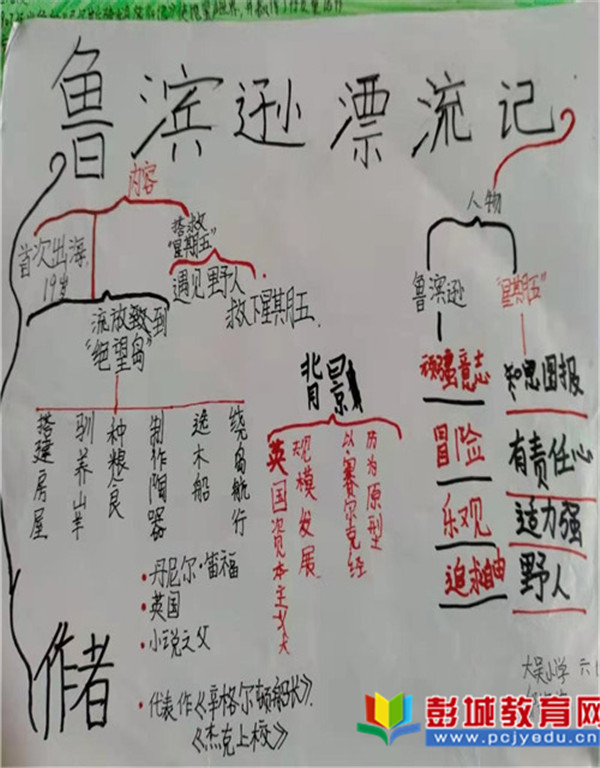 鲁滨逊漂流记
内容
首次出海,
19岁
搭救
"星期五"
遇见野人
救下星期五.
流放致到
"绝望岛"
搭建房屋
驯养山羊
种粮食
制作陶器
造木船
绕岛航行
人物
鲁滨逊
"星期五"
顽强意志
冒险
乐观
追求自由
知恩图报
有责任心
适力强
野人
背景
英国资本主义
规模发展
以赛尔克经
历为原型
作者
·丹尼尔·笛福
·英国
·小说之父
·代表作《辛格尔顿船长》
《杰克上校》
大吴小学 六
彭城教育网
www.pcjyedu.com